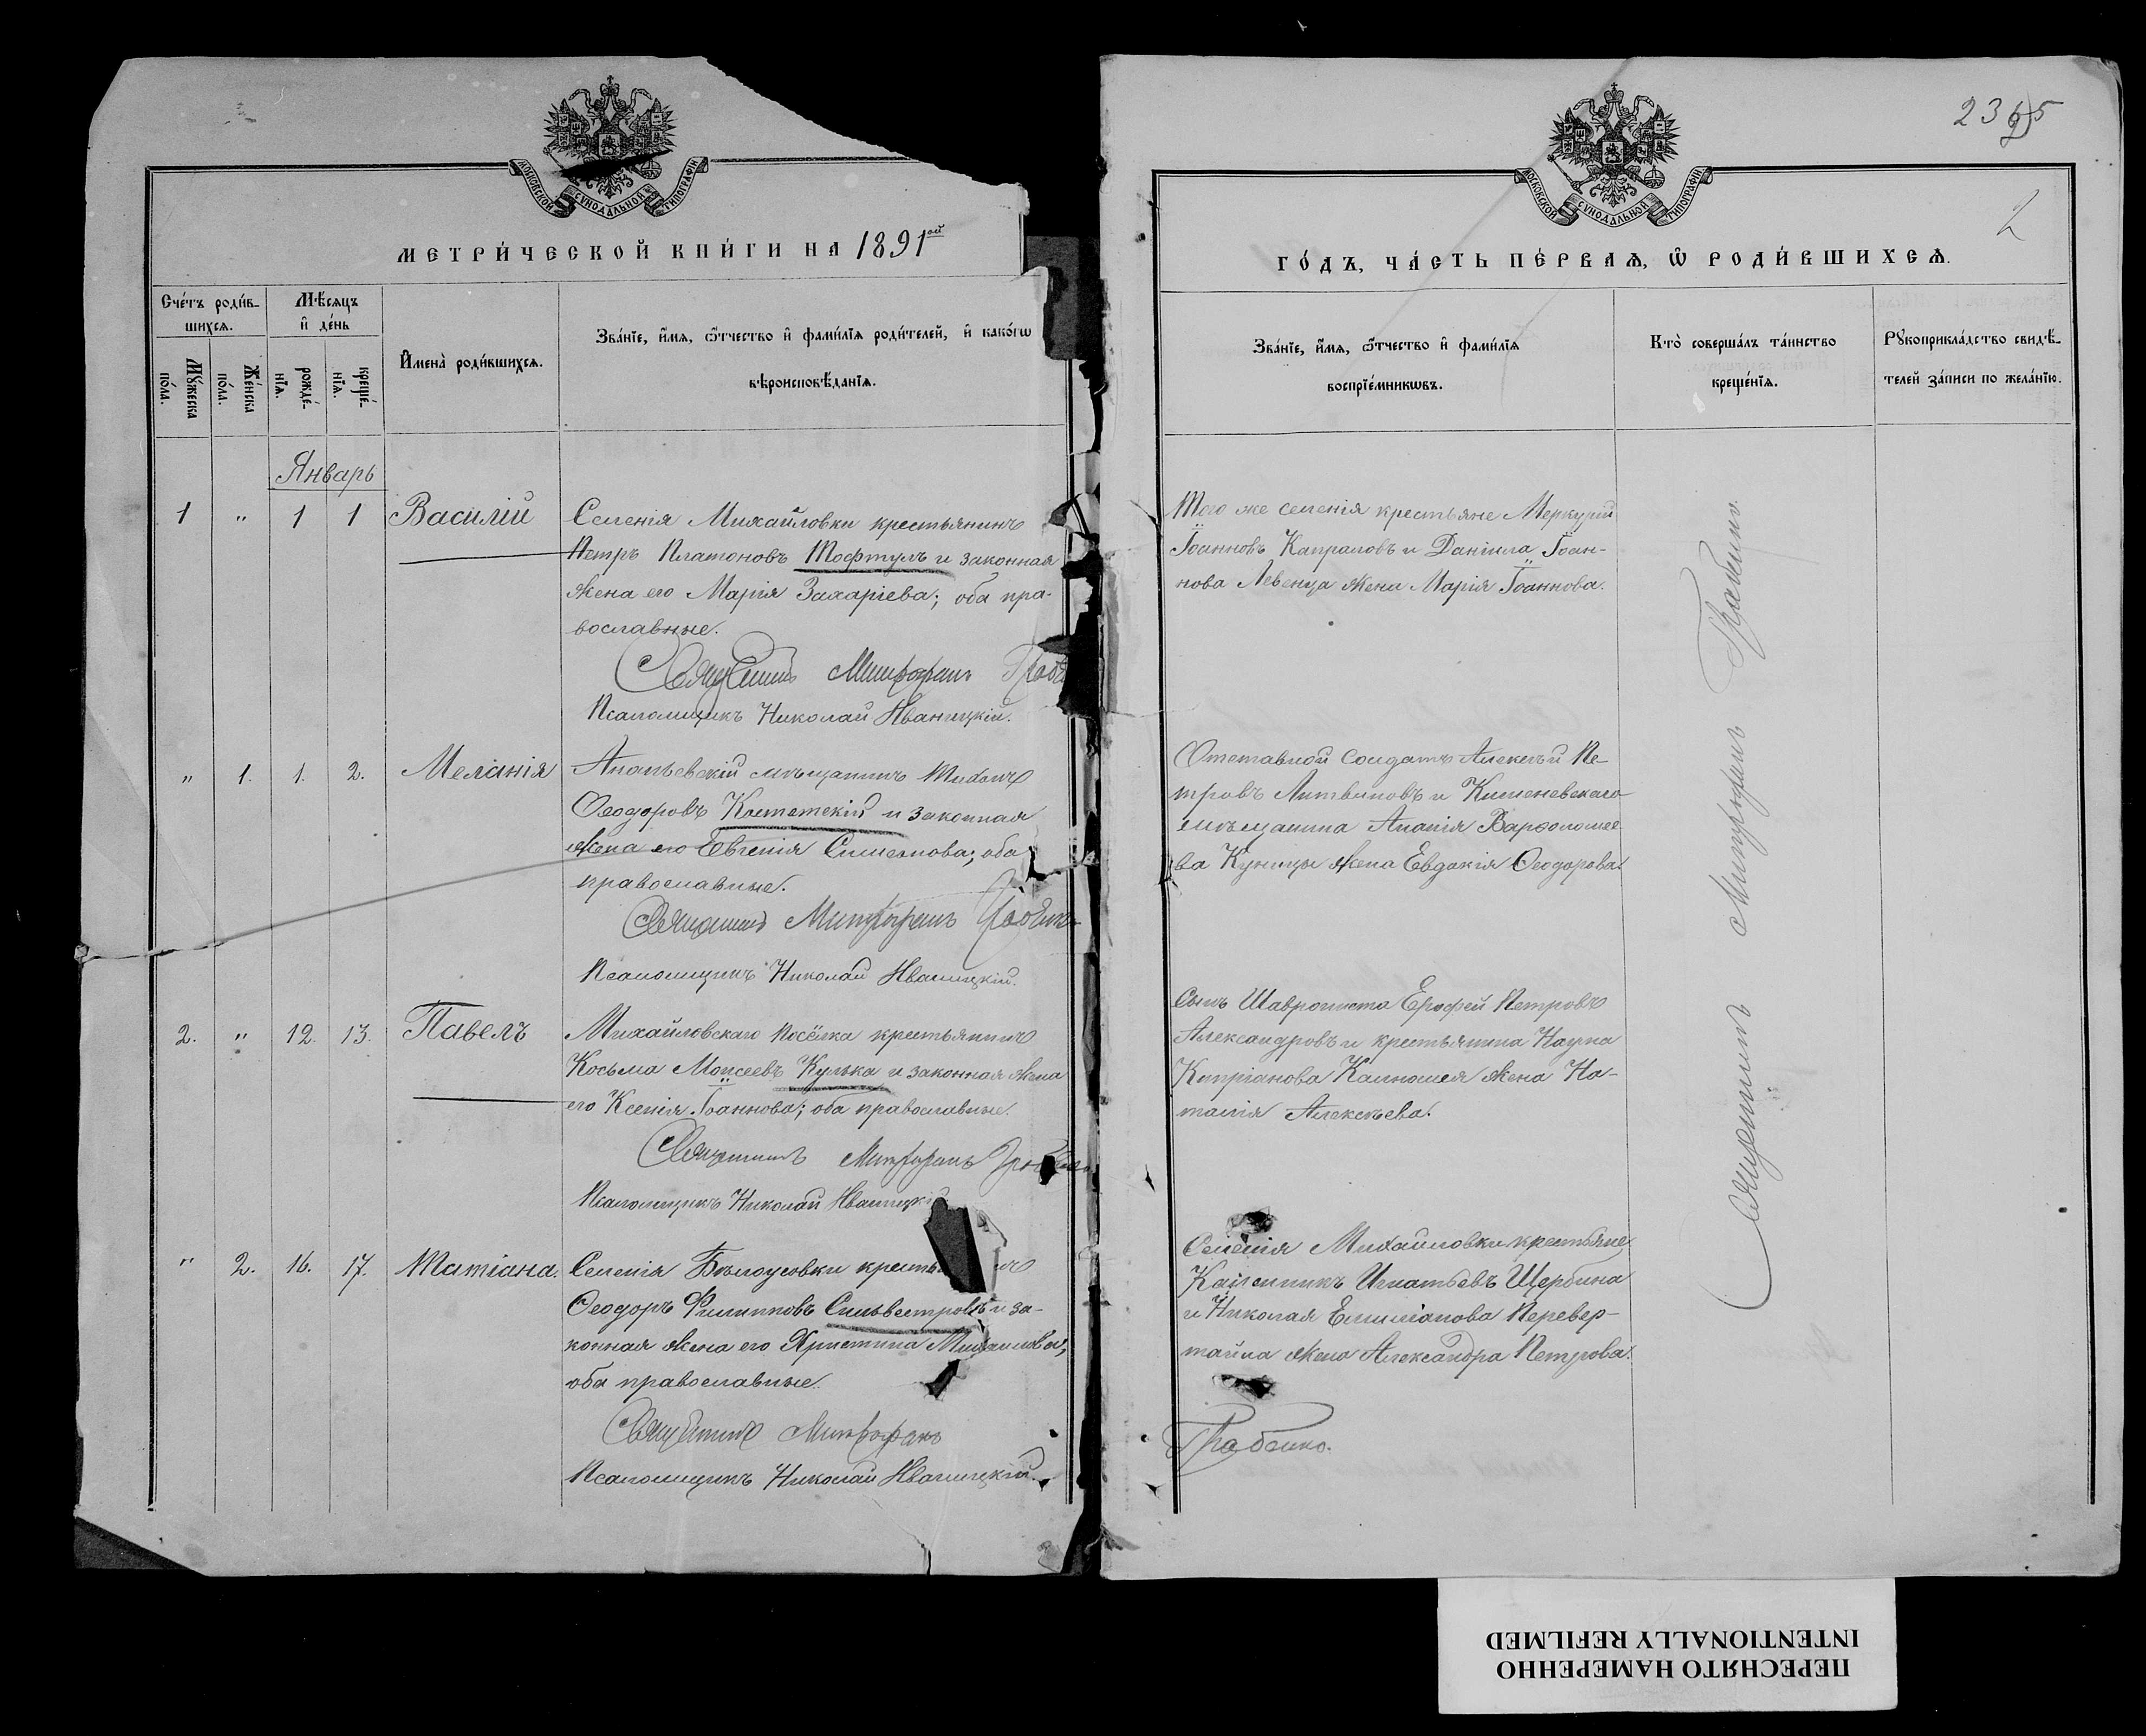 МОСКОВСКОЙ СУНОДАЛЬНОЙ ТИПОГРАФІИ
МЕТРИ́ЧЕСКОЙ КНИ́ГИ НА 1891ой
Сче́тъ роди́в-
шихсѧ.
Мѣ́сяцъ
и҆ де́нь
Мꙋ́жеска
по́ла.
Же́нска
по́ла.
рожде́-
нїѧ.
креще́-
нїѧ.
И҆мена̀ роди́вшихсѧ.
Зва́нїе, и҆́мѧ, ѻ҆́тчество и҆ фами́лїѧ роди́телей, и҆ како́гѡ
вѣроисповѣ́данїѧ.
Январь
1 " 1 1 Василій
Селенія Михайловки крестьянинъ
Петръ Платоновъ Мофтулъ и законная
жена его Марія Захаріева; оба пра-
вославные.
Священникъ Митрофанъ
Псаломщикъ Николай Иваницкій.
" 1. 1. 2. Меланія
Ананьевскій мѣщанинъ Тихонъ
Ѳеодоровъ Костетскій и законная
жена его Евгенія Симеонова; оба
православные.
Священникъ Митрофанъ
Псаломщикъ Николай Иваницкій.
2. " 12. 13. Павелъ
Михайловскаго посёлка крестьянинъ
Косьма Моисеевъ Кулька и законная жена
его Ксенія Іоаннова; оба православные.
Священникъ Митрофанъ
Псаломщикъ Николай Иваницкій
" 2. 16. 17. Татіана.
Селенія Бѣлоусовки
Ѳеодоръ Филипповъ Сильвестровъ и за-
конная жена его Христина Михаилова;
оба православные.
Священникъ Митрофанъ
Псаломщикъ Николай Иваницкій.
2365
2
МОСКОВСКОЙ СУНОДАЛЬНОЙ ТИПОГРАФІИ
ГО́ДЪ, ЧА́СТЬ ПЕ́РВАѦ, Ѡ҆ РОДИ́ВШИХСѦ.
Зва́нїе, и҆́мѧ, ѻ҆́тчество и҆ фами́лїѧ
воспрїе́мникѡвъ.
Кто̀ соверша́лъ та́инство
креще́нїѧ.
Рꙋкоприкла́дство свидѣ́-
телей за́писи по жела́нїю.
Того же селенія крестьяне Меркурій
Іоанновъ Капраловъ и Даніила Іоан-
нова Левенца жена Марія Іоаннова.
Отставной солдатъ Алексѣй Пе-
тровъ Литвиновъ и Кишеневскаго
мѣщанина Ананія Варѳоломее-
ва Куницы жена Евдокія Ѳеодорова.
Сынъ Ерофей Петровъ
Александровъ и крестьянина Наума
Кипріанова жена На-
талія Алексѣева.
Селенія Михайловки крестьяне
Игнатьевъ Щербина
и Николая Перевер-
тайла жена Александра Петрова.
Грабенко.
Священникъ Митрофанъ Грабенко.
ПЕРЕСНЯТО НАМЕРЕННО
INTENTIONALLY REFILMED